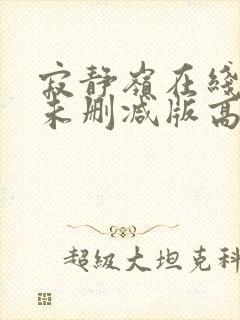 寂静嶺在綫
未删减版高
超级大坦克科